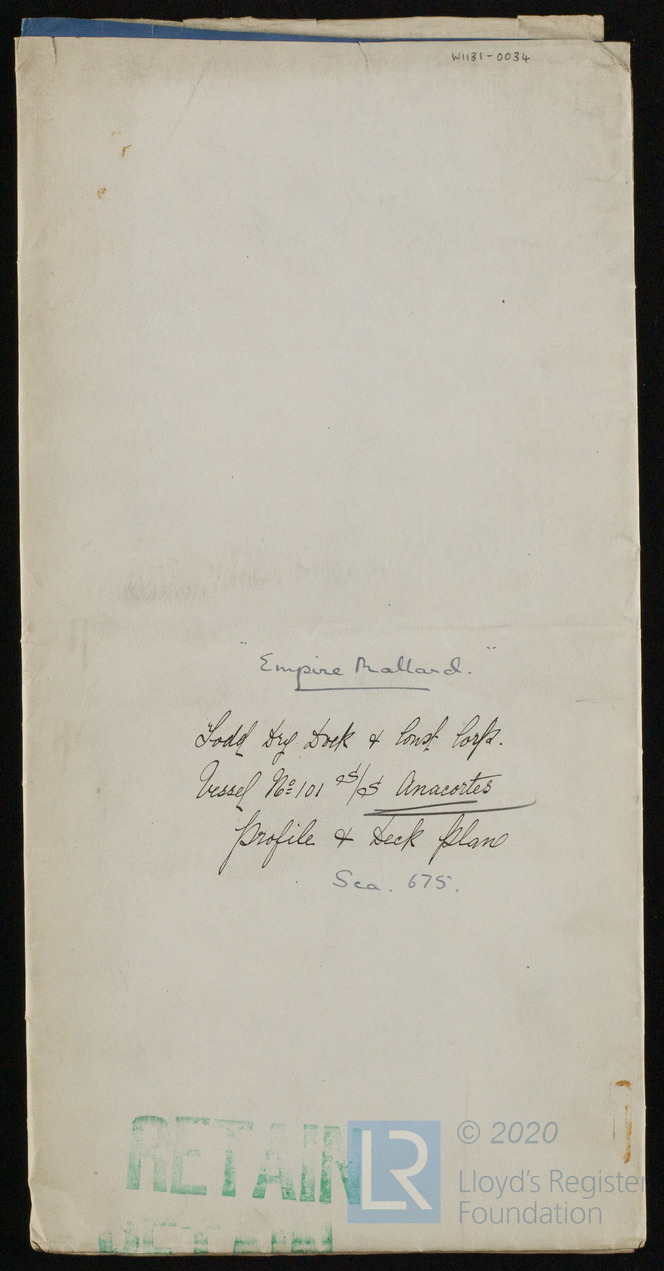 W1131-0034
"Empire Mallard."
Todd Dry Dock & Const Corp.
Vessel No 101 S/S Anacortes
Profile & Deck Plan
Sea. 675.
RETAIN
RETAIN
LR
© 2020
Lloyd's Register
Foundation